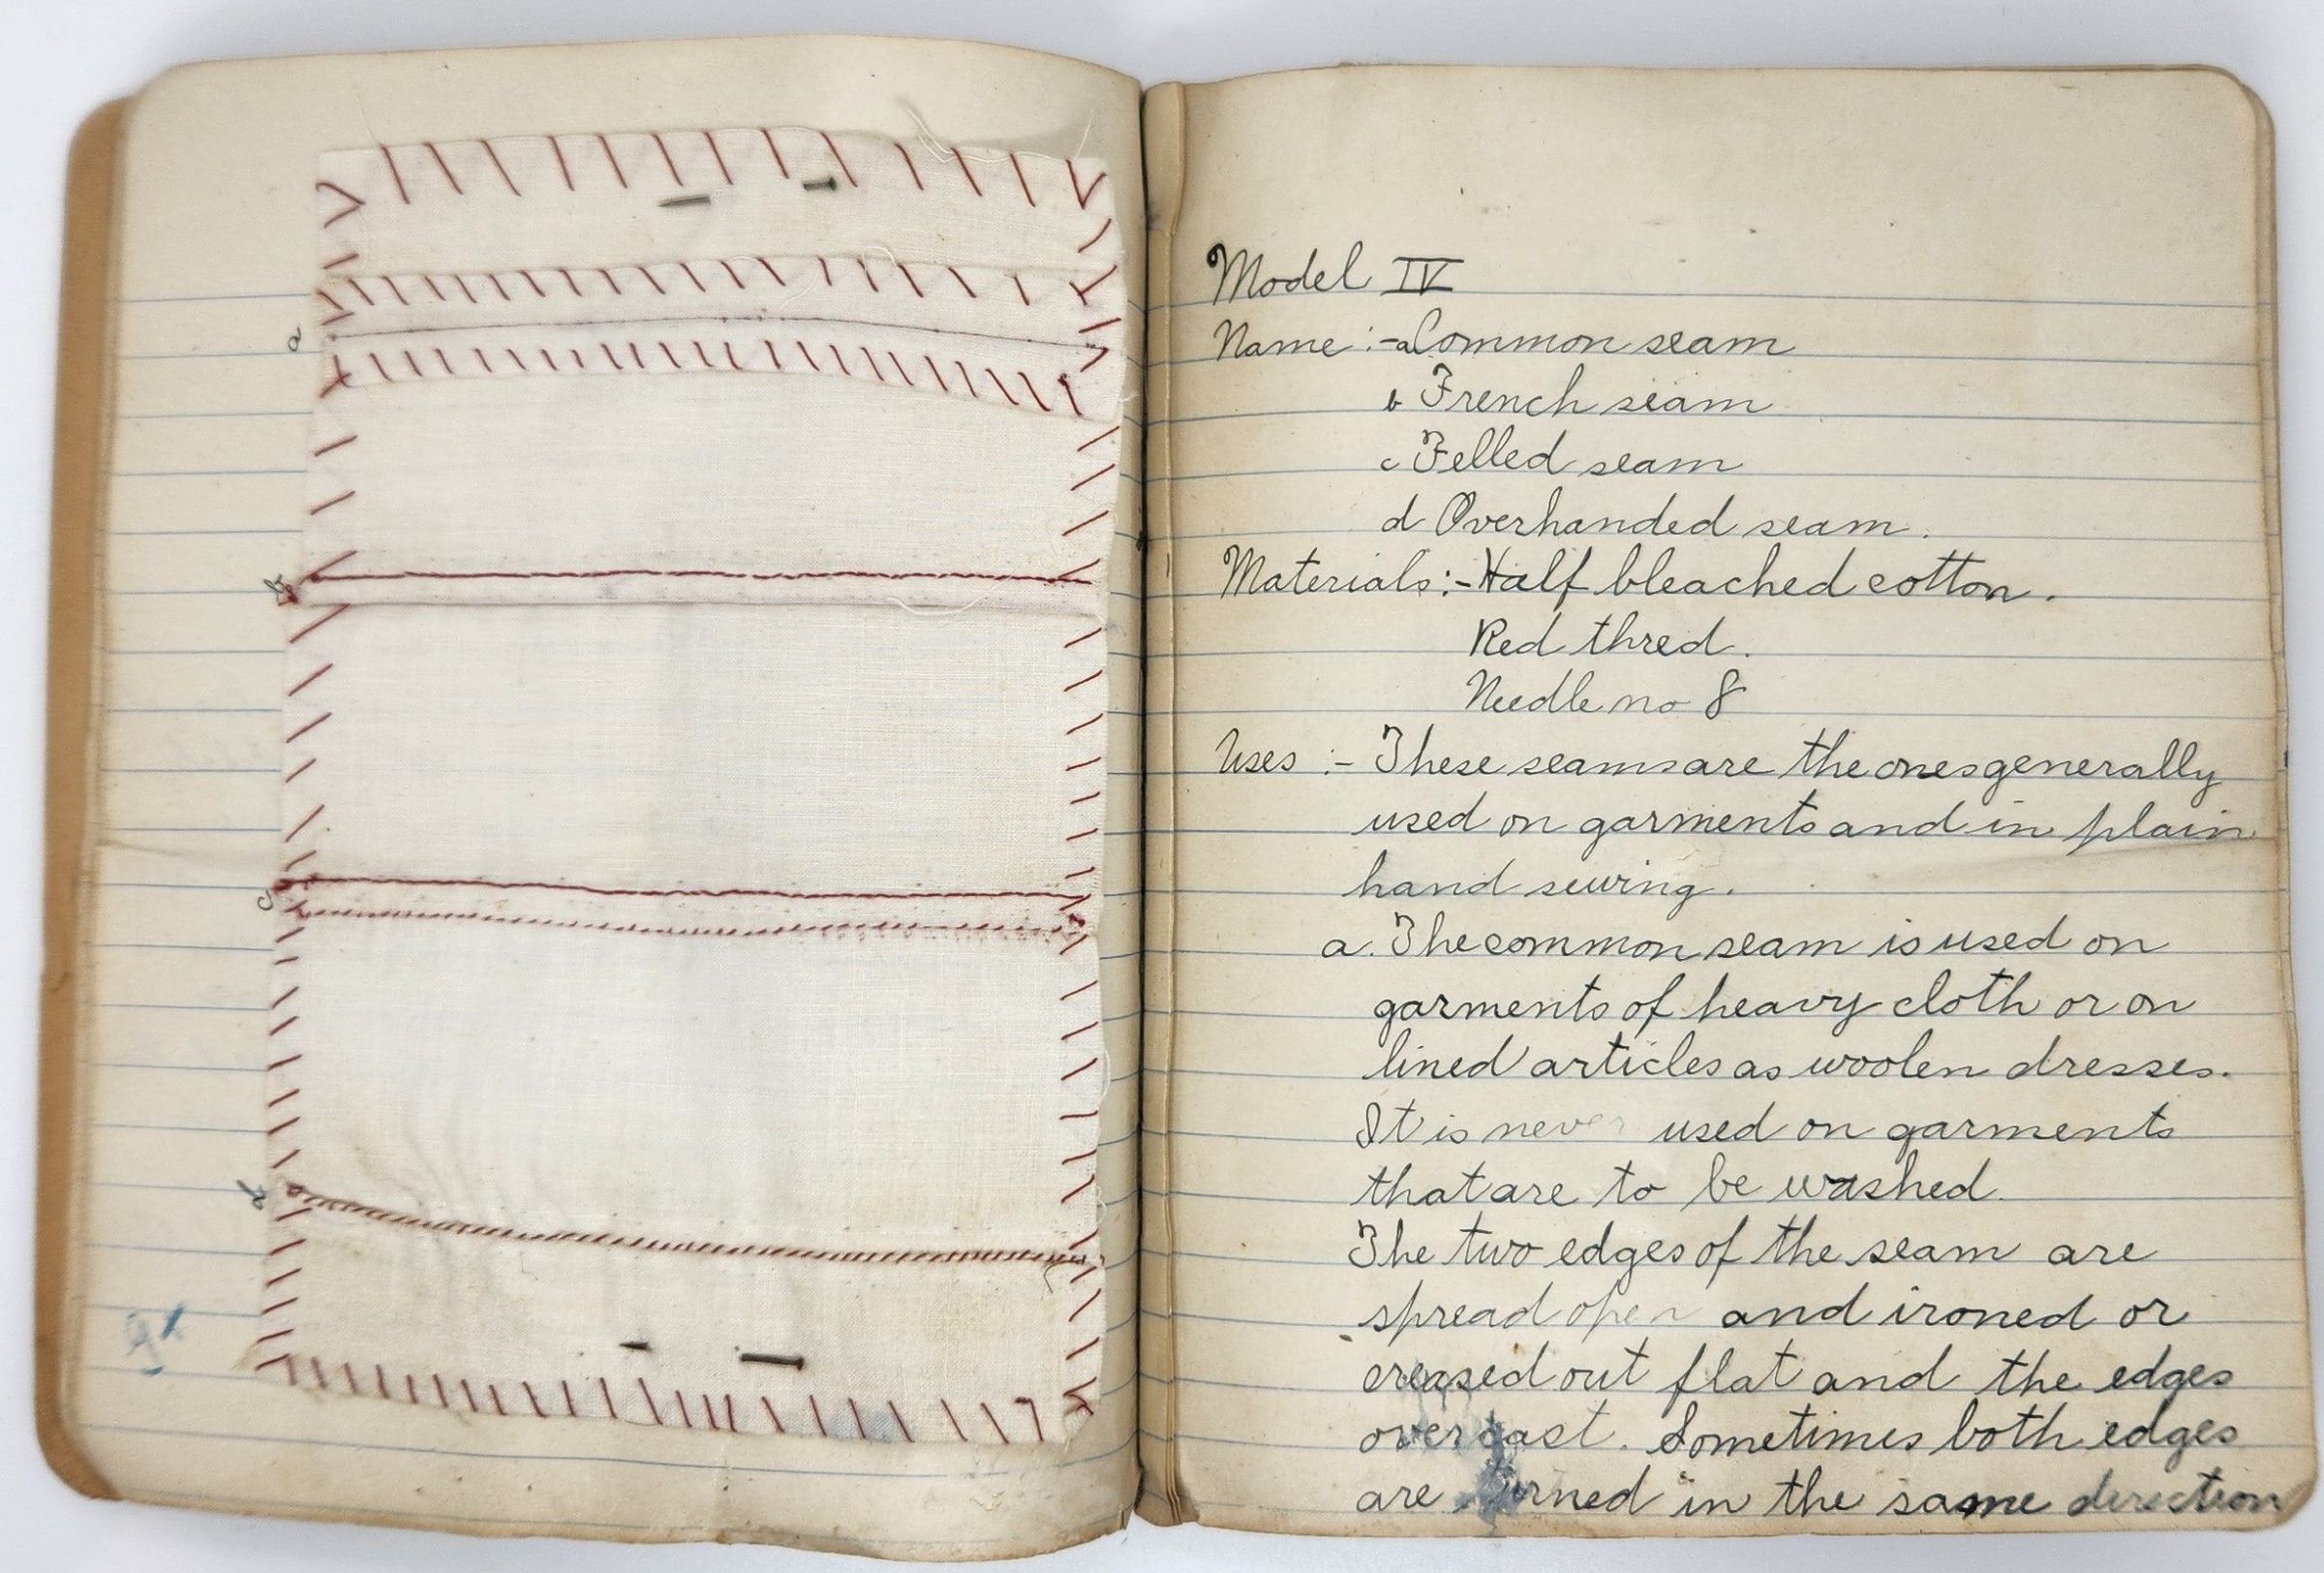 a
b
c
d
Model IV
Name :- a Common seam
b French seam
c Felled seam
d Overhanded seam.
Materials :- Half bleached cotton.
Red thred.
Needle no 8
Uses :- These seams are the ones generally
used on garments and in plain
hand sewing.
a. The common seam is used on
garments of heavy cloth or on
lined articles as woolen dresses.
It is never used on garments
that are to be washed.
The two edges of the seam are
spread open and ironed or
creased out flat and the edges
overcast. Sometimes both edges
are turned in the same direction